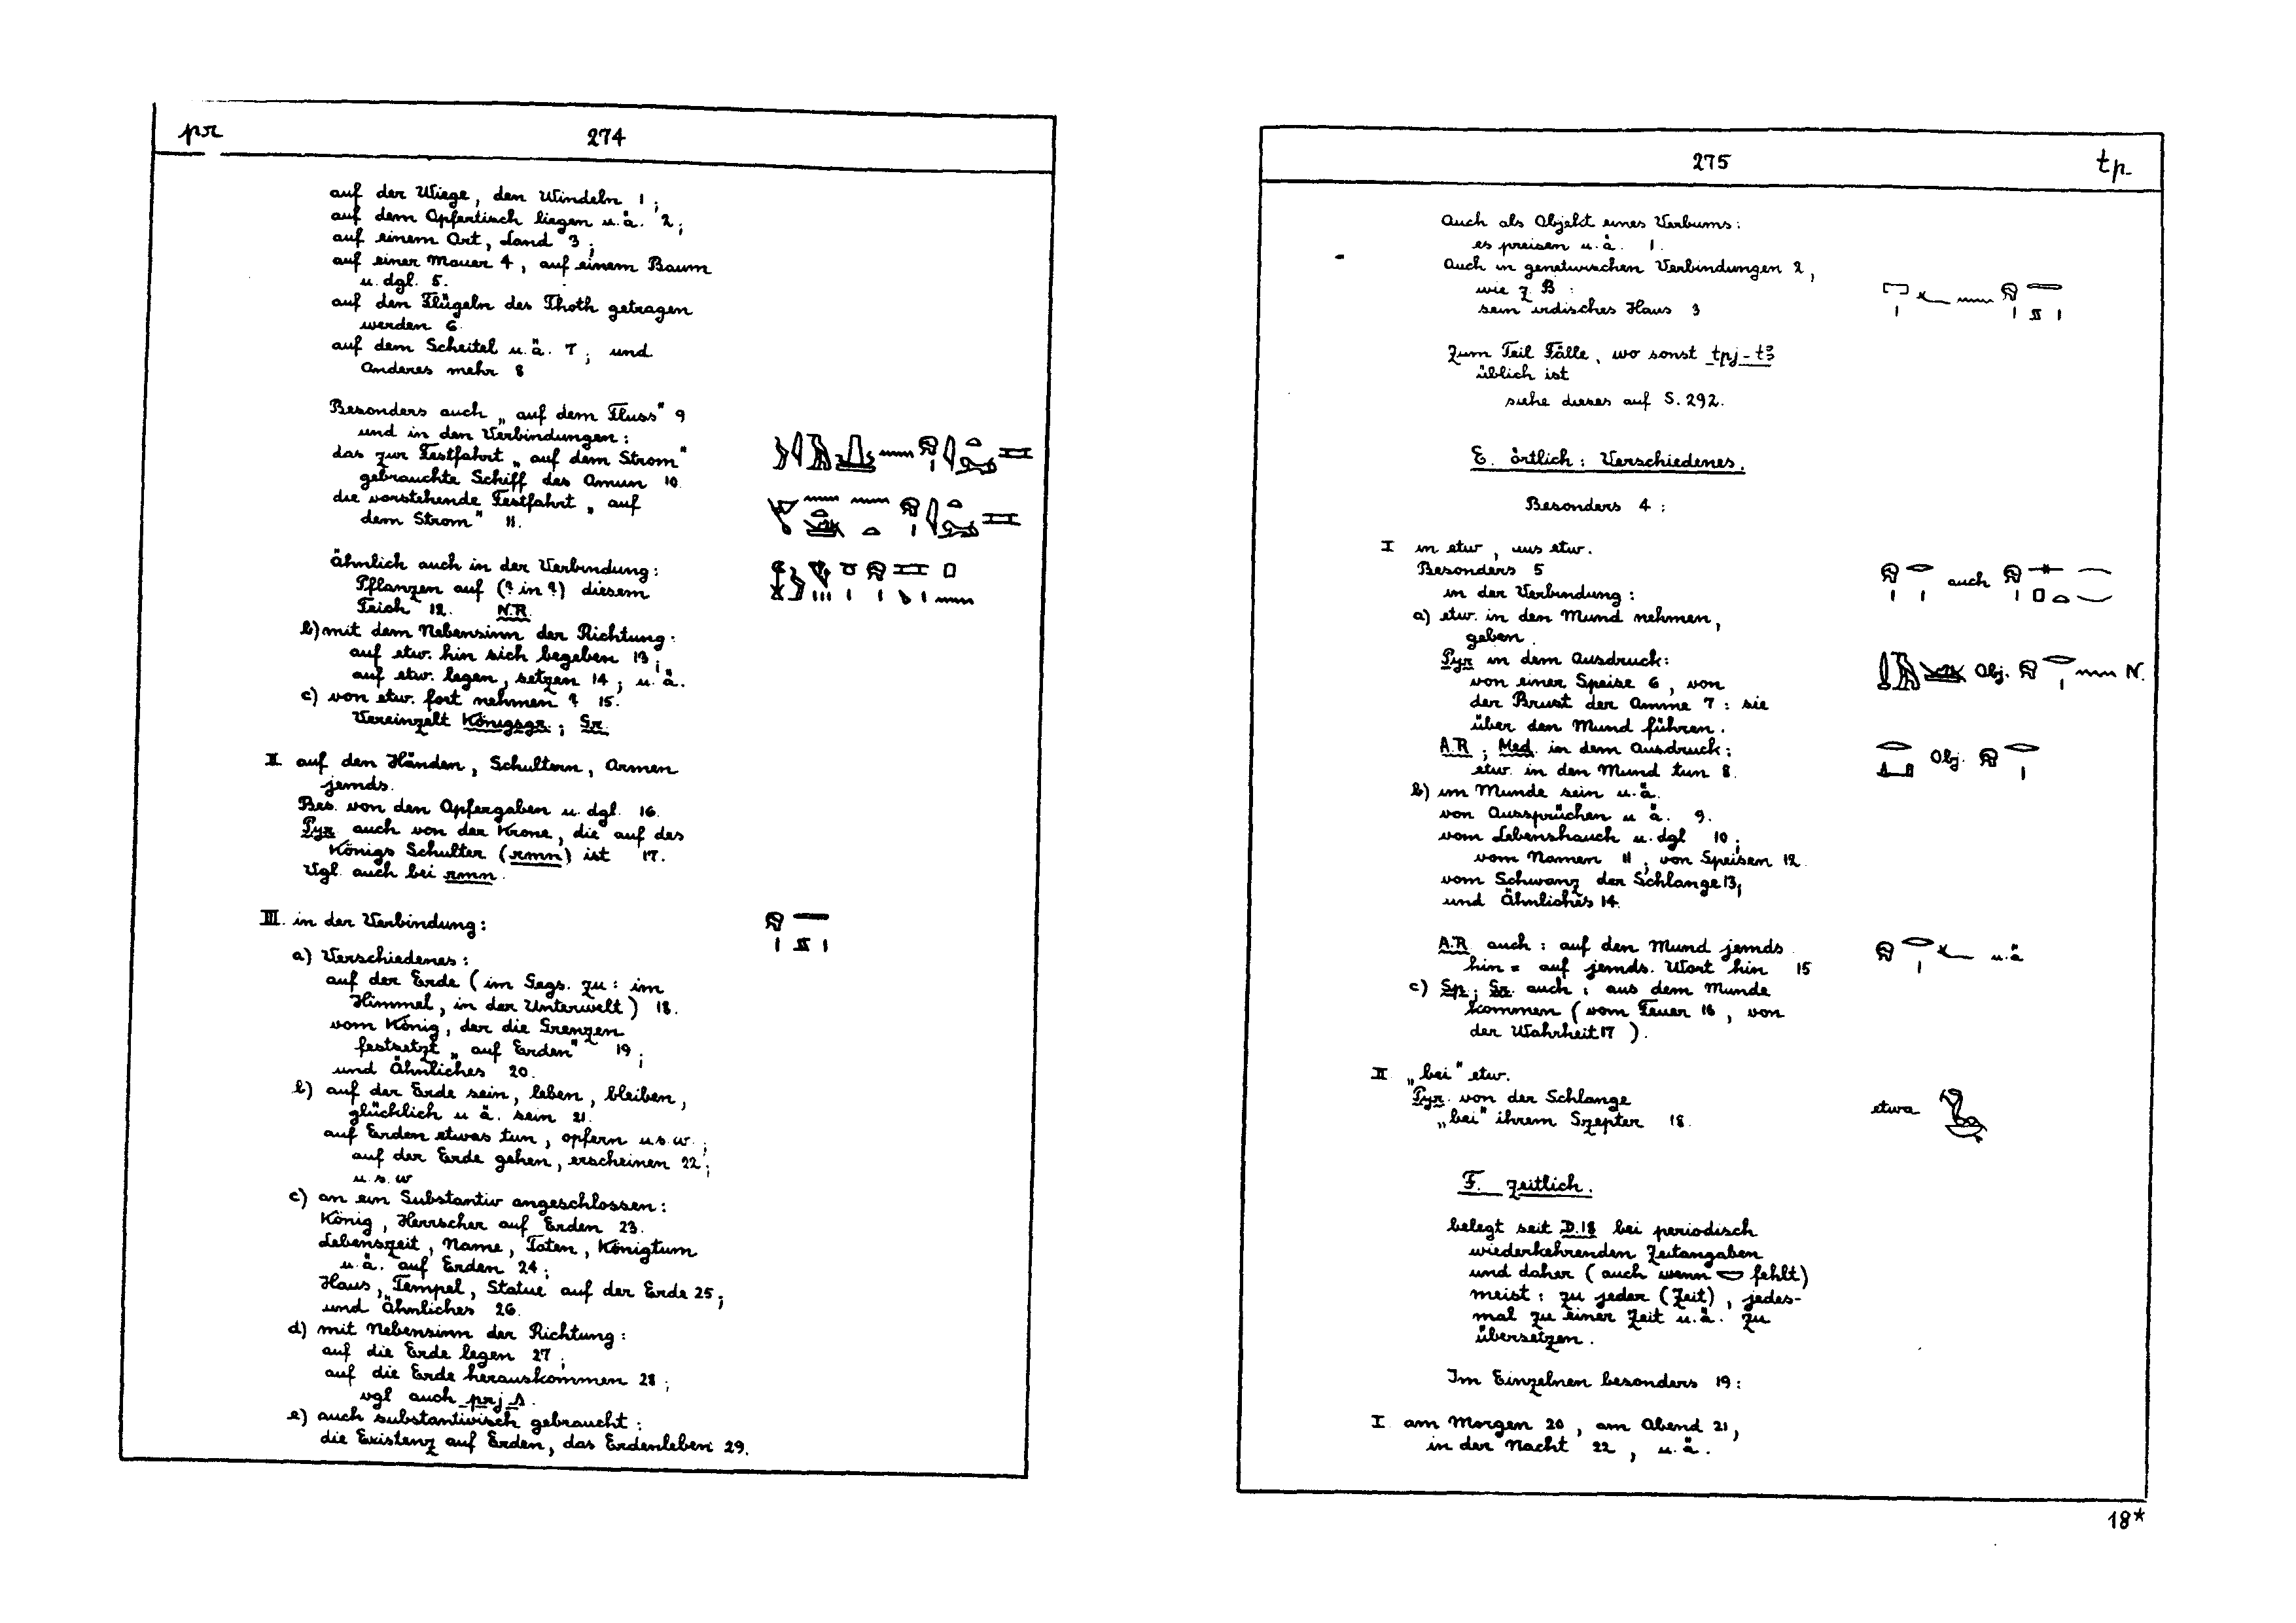 pr
274
auf der Wiege, den Windeln 1;
auf dem Opfertisch liegen u.ä. 2;
auf einem Ort, Land 3;
auf einer Mauer 4, auf einem Baum
u. dgl. 5.
auf den Flügeln des Thoth getragen
werden 6.
auf dem Scheitel u.ä. 7; und
Anderes mehr 8
Besonders auch „auf dem Fluss" 9
und in den Verbindungen:
das zur Festfahrt „auf dem Strom"
gebrauchte Schiff des Amun 10.
die vorstehende Festfahrt „auf
dem Strom" 11.
Ähnlich auch in der Verbindung:
Pflanzen auf (? in ?) diesem
Teich 12. N.R.
b) mit dem Nebensinn der Richtung:
auf etw. hin sich begeben 13;
auf etw. legen, setzen 14; u.ä.
c) von etw. fort nehmen ? 15.
Vereinzelt Königsgr.; Gr.
II auf den Händen, Schultern, Armen
jemds.
Bes. von den Opfergaben u. dgl. 16.
Pyr. auch von der Krone, die auf des
Königs Schulter (rmn) ist 17.
Vgl. auch bei rmn.
III. in der Verbindung:
a) Verschiedenes:
auf der Erde (im Ggs. zu: im
Himmel, in der Unterwelt) 18.
vom König, der die Grenzen
festsetzt „auf Erden" 19;
und Ähnliches 20.
b) auf der Erde sein, leben, bleiben,
glücklich u. ä. sein 21.
auf Erden etwas tun, opfern u.s.w.;
auf der Erde gehen, erscheinen 22;
u.s.w
c) an ein Substantiv angeschlossen:
König, Herrscher auf Erden 23.
Lebenszeit, Name, Taten, Königtum
u.ä. auf Erden 24;
Haus, Tempel, Statue auf der Erde 25;
und Ähnliches 26.
d) mit Nebensinn der Richtung:
auf die Erde legen 27;
auf die Erde herauskommen 28;
vgl auch prj
e) auch substantivisch gebraucht:
die Existenz auf Erden, das Erdenleben 29.
275
tp
Auch als Objekt eines Verbums:
es preisen u.ä. 1.
Auch in genetivischen Verbindungen 2,
wie z B:
sein irdisches Haus 3
Zum Teil Fälle, wo sonst tpj-tꜣ
üblich ist
siehe dieses auf S. 292.
E. örtlich: Verschiedenes.
Besonders 4:
I in etw, aus etw.
Besonders 5
in der Verbindung:
auch
a) etw. in den Mund nehmen,
geben.
Pyr in dem Ausdruck:
Obj. N.
von einer Speise 6, von
der Brust der Amme 7: sie
über den Mund führen.
A.R; Med. in dem Ausdruck:
Obj.
etw. in den Mund tun 8.
b) im Munde sein u.ä.
von Aussprüchen u ä. 9.
vom Lebenshauch u. dgl 10;
vom Namen 11, von Speisen 12.
vom Schwanz der Schlange 13;
und Ähnliches 14.
A.R auch: auf den Mund jemds.
hin = auf jemds. Wort hin 15
u.ä
c) Sp; Gr. auch: aus dem Munde
kommen (vom Feuer 16, von
der Wahrheit 17).
II „bei" etw.
Pyr. von der Schlange
„bei" ihrem Szepter 18.
etwa
F. zeitlich.
belegt seit D.18 bei periodisch
wiederkehrenden Zeitangaben
und daher (auch wenn 𓎟 fehlt)
meist: zu jeder (Zeit), jedes-
mal zu einer Zeit u.ä. zu
übersetzen.
Im Einzelnen besonders 19:
I am Morgen 20, am Abend 21,
in der Nacht 22, u.ä.
18*